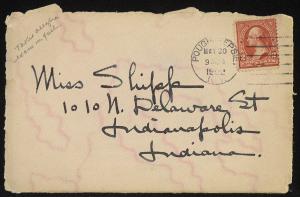 POUGHKEEPSIE
MAY 20
Miss Shipp
1010 N. Delaware St
Indianapolis
Indiana.